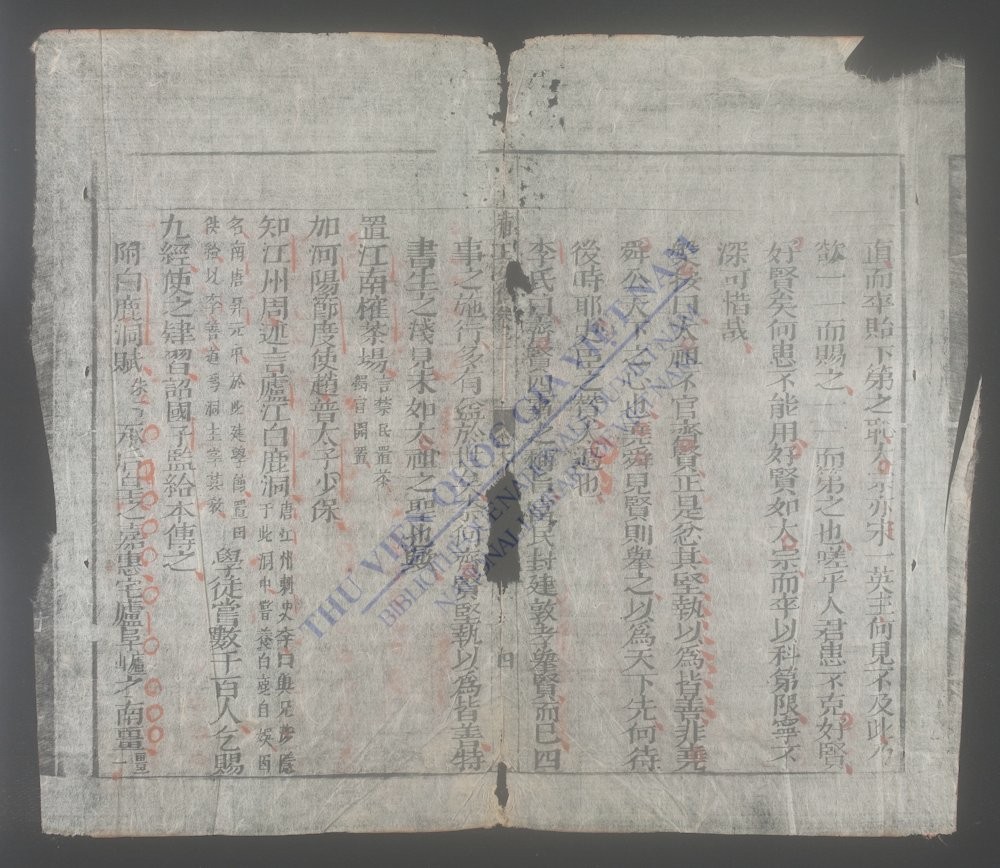 直而卒貽下第之恥太宗亦宋一英主何見不及此乃
歟一一而賜之一一而第之也嗟乎人君患不克好賢
好賢矣何患不能用好賢如太宗而卒以科第限寧不
深可惜哉
曰太祖不官齊賢正是忿其堅執以為皆善非堯
舜公天下之心也堯舜見賢則舉之以為天下先何待
後時耶史臣之贊人過也
李氏曰齊賢四說之稱旨富民封建敦孝舉賢而已四
事之施行多有益於世奈何齊賢堅執以為皆善特
書生之淺見未如太祖之聖也歟
置江南榷茶場言禁民置茶
鬻官開置
加河陽節度使趙普太子少保
知江州周述言廬江白鹿洞唐江州刺史李口與兄涉隱
于此洞中嘗養白鹿自娛因
名南唐昇元中於此建學館置田
徒給以李善道為洞主掌其教
學徒嘗數千百人乞賜
九經使之肄習詔國子監給本傳之
附白鹿洞賦
承后皇之嘉惠宅廬阜之南疆
四
THƯ VIỆN QUỐC GIA VIỆT NAM
BIBLIOTHÈQUE NATIONALE DU VIETNAM
NATIONAL LIBRARY OF VIETNAM